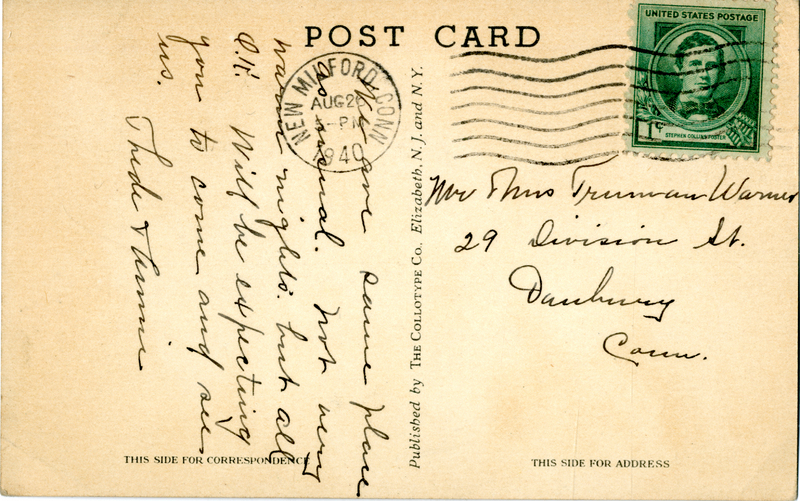 POST CARD
UNITED STATES POSTAGE
1¢
STEPHEN COLLINS FOSTER
NEW MILFORD, CONN
AUG 26
5-PM
1940
We are same place
as usual. Not very
warm nights. but all
O.K. Will be expecting
you to come and see
us.
Mr Mrs Truman Warner
29 Division St.
Danbury
Conn.
Published by THE COLLOTYPE CO. Elizabeth, N. J. and N. Y.
THIS SIDE FOR CORRESPONDENCE
THIS SIDE FOR ADDRESS